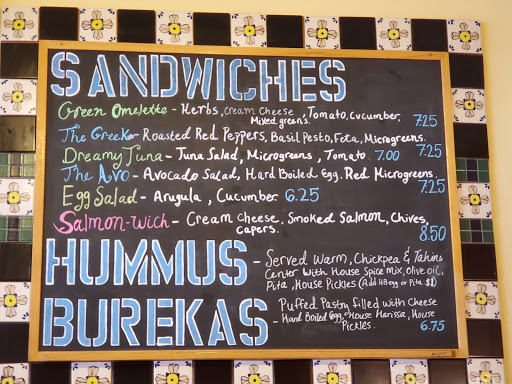 SANDWICHES
Green Omelette - Herbs, Cream Cheese, Tomato, Cucumber, Mixed greens. 7.25
The Greek - Roasted Red Peppers, Basil Pesto, Feta, Microgreens. 7.25
Dreamy Tuna - Tuna Salad, Microgreens, Tomato 7.00
The Avo - Avocado Salad, Hard Boiled Egg. Red Microgreens. 7.25
Egg Salad - Arugula, Cucumber 6.25
Salmon-wich - Cream Cheese, Smoked Salmon, Chives,
capers. 8.50
HUMMUS - Served Warm, Chickpea & Tahine
Center with House Spice Mix, Olive Oil,
Pita, House Pickles (Add HB egg or Pita $1)
BUREKAS - Puffed Pastry filled with Cheese
Hard Boiled Egg, House Harissa, House
Pickles. 6.75